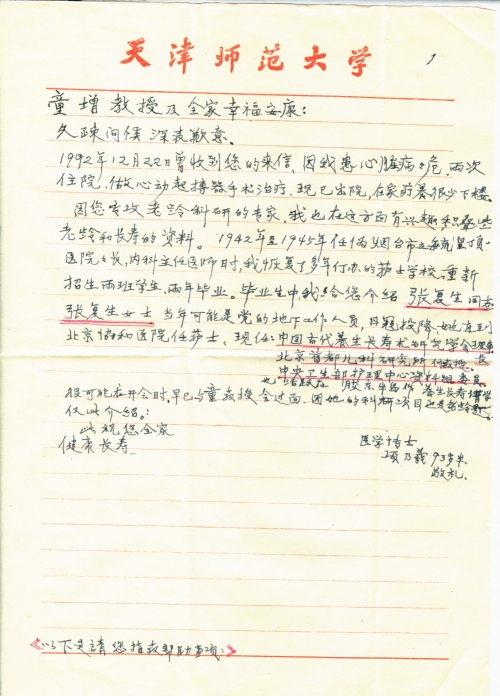 天津师范大学
1
童增教授及全家幸福安康:
久疎问候深表歉意.
1992年12月22日曾收到您的来信,因我患心脏病危,两次
住院,做心动起搏器手术治疗,现已出院,在家疗养很少下楼.
因您专攻老龄科研的专家,我也在这方面有兴趣积聚些
老龄和长寿的资料。1942年至1945年任伪烟台市立毓璜顶
医院院长,内科主任医师时,我恢复了多年停办的护士学校,重新
招生两班学生,两年毕业。毕业生中我给您介绍张复生同志
张复生女士当年可能是党的地下工作人员,日寇投降她直到
北京协和医院任护士,现任:中国古代养生长寿术研究学会理事
北京首都儿科研究所
中央卫生部护理中心资料组委员
胶东半岛 养生长寿
很可能在开会时,早已与童教授会过面,因她的科研项目也是老龄
仅此介绍。:
此祝您全家
健康长寿.
医学博士
项乃羲 93岁
敬礼.
《以下是请您指教帮助事项:》